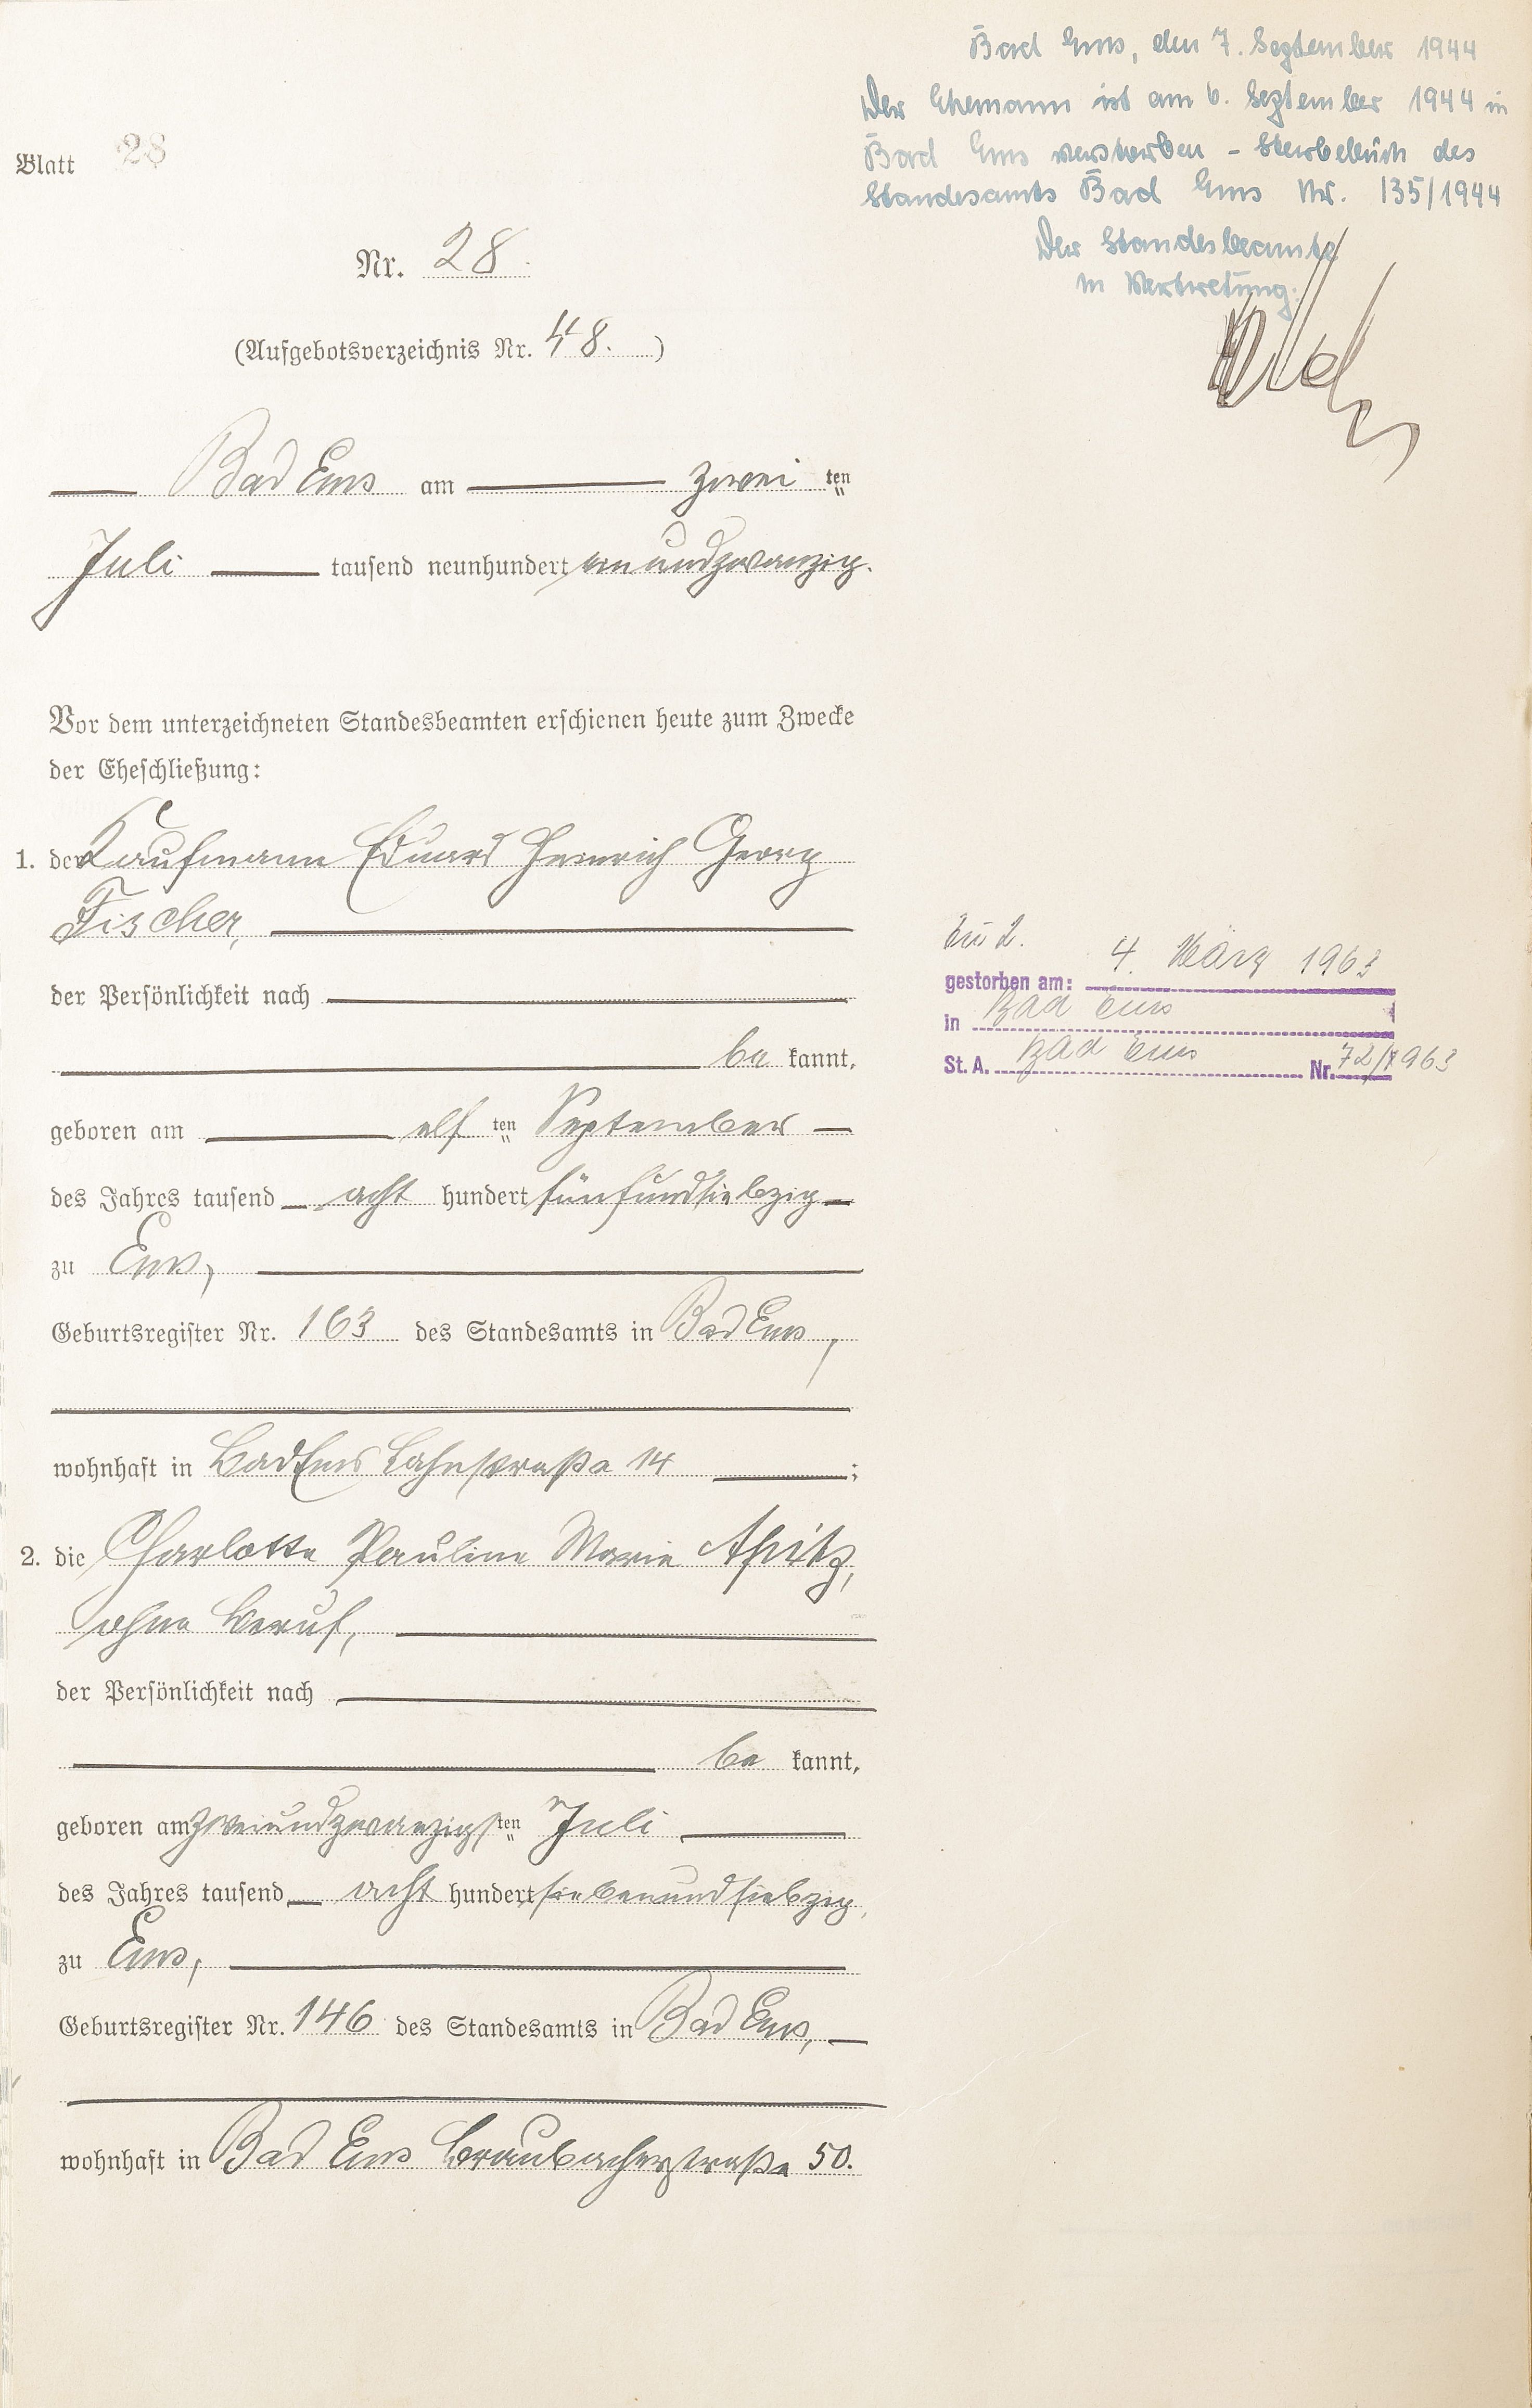 Bad Ems, den 7. September 1944
Der Ehemann ist am 6. September 1944 in
Bad Ems verstorben - Sterbebuch des
Standesamts Bad Ems Nr. 135/1944
Der Standesbeamte
in Vertretung:
Blatt 28
Nr. 28.
(Aufgebotsverzeichnis Nr. 48.)
Bad Ems am zwei ten
Juli tausend neunhundert einundzwanzig.
Vor dem unterzeichneten Standesbeamten erschienen heute zum Zwecke
der Eheschließung:
1. der Kaufmann Eduard Heinrich Georg
Fischer,
der Persönlichkeit nach
be kannt,
geboren am elf ten September
des Jahres tausend acht hundert fünfundsiebzig
zu Ems,
Geburtsregister Nr. 163 des Standesamts in Bad Ems,
wohnhaft in Bad Ems Lahnstraße 14 ;
2. die Charlotte Pauline Marie Apitz,
ohne Beruf,
der Persönlichkeit nach
be kannt,
geboren am zweiundzwanzigsten Juli
des Jahres tausend acht hundert siebenundsiebzig,
zu Ems,
Geburtsregister Nr. 146 des Standesamts in Bad Ems,
wohnhaft in Bad Ems Braubacherstraße 50.
Zu 2.
gestorben am: 4. März 1963
in Bad Ems
St. A. Bad Ems Nr. 72/1963